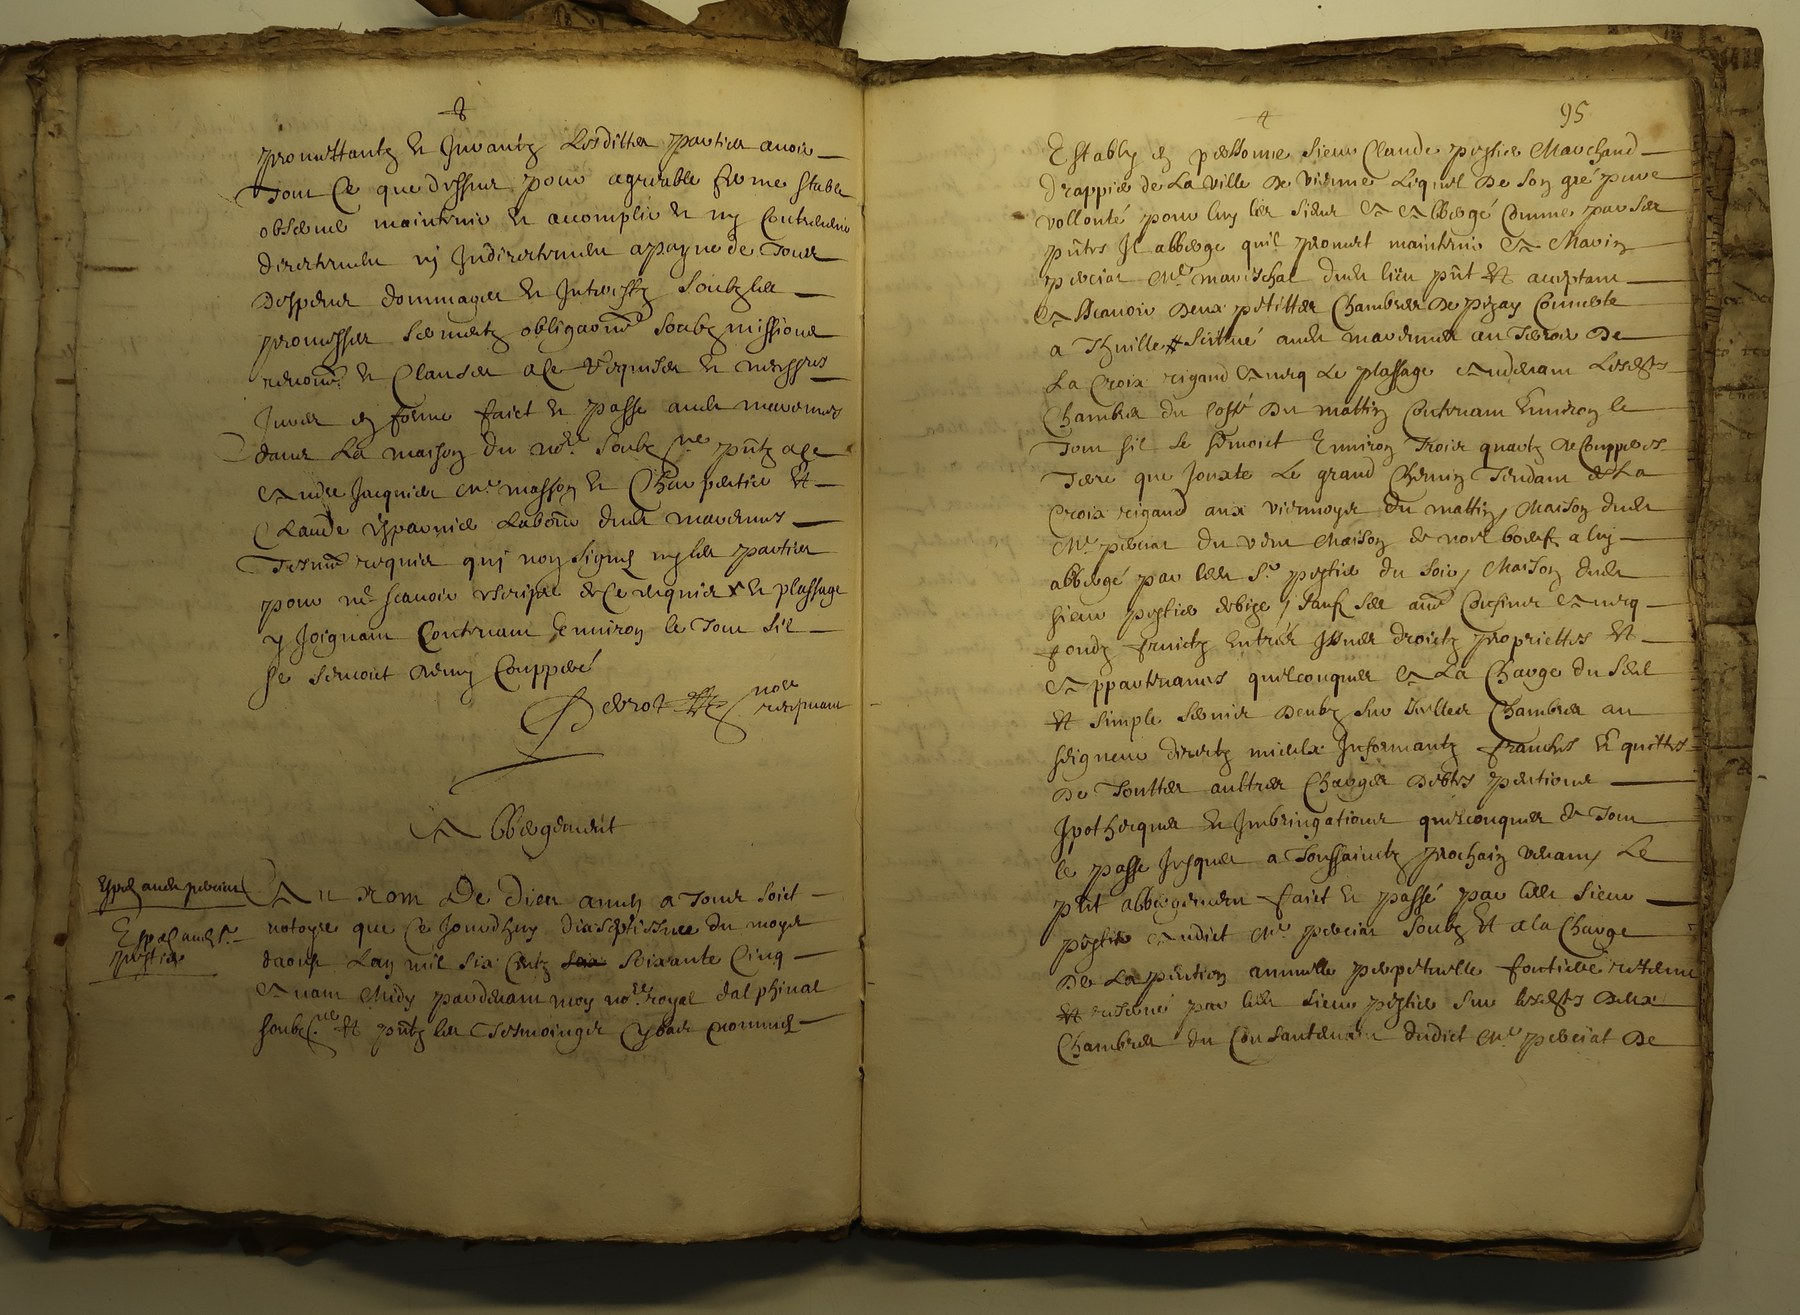 promettantz et Jurantz Lesdittes parties avoir
Tout Ce que dessus pour agreable ferme stable
observer maintenir et accomplir et ny Contrevenir
directement nj Indirectement a payne de Tous
Despens dommages et Interestz Soubz les
promesses sermentz obligaons Soubzmissions
renons et Clauses a Ce requises et necessres
Jurer en forme faict et passe audt
dans La maison du nore Soubzne pntz a Ce
Andre Jacquier Me masson et Charpentier Et
Claude Labour dudt
Tesmns requis quj nont Signe ny les parties
pour ne scavoir escripre de Ce requis X et plassage
y Joignant Contenant Environ le Tout Sil
se semoict demy Couppée
Derot nore recepvant
Abbergement
Expedé audt perciat
Expedé audt Sr
pestie
Au nom De Dieu amen a Tous soict
notoyre que Ce Jourdhuy dixseptiesme du moys
daoust Lan mil six Centz Soixante Cinq
Avant Midy pardevant moy nore royal dalphinal
soubzne Et pntz les Tesmoingz Cybas nommes
95
Estably en personne sieur Claude pestie Marchand
drappier de La ville De vienne Lequel De son gré pure
vollonté pour luy les siens A Abbergé Comme par Ses
pntes Il abberge quil promet maintenir A Mavin
perciat Me mareschal dudt lieu pnt Et acceptant
A Scavoir Deux petittes Chambres De pizay Couverte
a Thuille Scitué audt au Terroir De
La Croix rigaud Avecq Le plassage Audevant Lesdtes
Chambres du Costé Du mattin Contenant Environ le
Tout sil se semoict Environ Trois quartz De Couppées
Terre que Jouxte Le grand Chemin Tendant de La
Croix rigaud aux viennoys du mattin, Maison dudt
Me perciat du vent Maison de a luy
abbergé par ledt Sr pestie du soir, Maison dudt
sieur pestie de bize, sauf ses aues Confins Avecq
fondz fruictz Entrés Issues droictz proprietes Et
Appartenances quelconques A La Charge du Sel
Et Simple Servis Deubz Sur Chambres au
seigneur directz mieulx Informantz franches Et quittes
De Touttes aultres Charges Debtes pentions
Ipotheques Et Imbringations quelconques de Tout
le passe Jusques a Toussainctz prochain venant, Le
pnt abbergement faict Et passé par ledt sieur
pestie Audict Me perciat Soubz Et a la Charge
De La pention annuelle perpetuelle fontiere
Et reservé par ledt sieur pestie Sur lesdtes Deux
Chambres du Consantement dudict Me perciat De